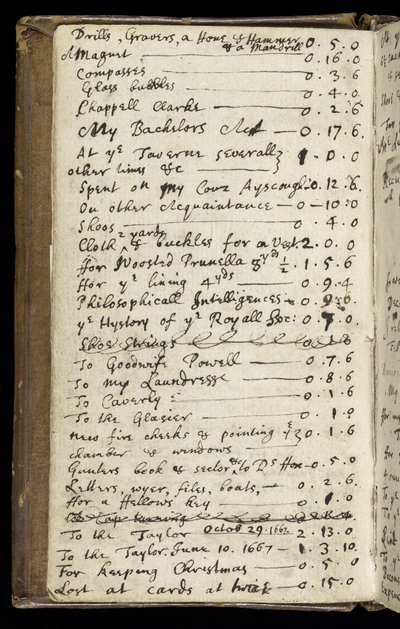 Drills, Gravers, a Hone & Hammer
& a Mandrill — 0 . 5 . 0
A Magnet — 0 . 16 . 0
Compasses — 0 . 3 . 6
Glass bubbles — 0 . 4 . 0
Chappell Clarke — 0 . 2 . 6
My Bachelors Act — 0 . 17 . 6
At yᵉ Taverne severall
other times &c — 1 . 0 . 0
Spent on my Couz Ayscough 0 . 12 . 6
On other Acquaintance — 0 — 10 : 0
Shoos — 0 . 4 . 0
Cloth 2 yards & buckles for a Vest 2 . 0 . 0
For Woosted Prunella 8 yᵈˢ ½ . 1 . 5 . 6
For yᵉ lining 4 yᵈˢ — 0 . 9 . 4
Philosophicall Intelligences — 0 . 9 . 6
yᵉ Hystory of yᵉ Royall Soc: 0 . 7 . 0
Shoe Strings
To Goodwife Powell — 0 . 7 . 6
To my Laundresse — 0 . 8 . 6
To Caverly — 0 . 1 . 6
To the Glasier — 0 . 1 . 0
new fire cheeks & pointing yᵉ 0 . 1 . 6
chamber & windows
Gunters book & sector &c to Dˢ — 0 . 5 . 0
Letters, wyer, files, boats, — 0 . 2 . 6
For a Fellows key — 0 . 1 . 0
To the Taylor Octob 29. 1667. 2 . 13 . 0
To the Taylor. June 10. 1667 — 1 . 3 . 10
For keeping Christmas — 0 . 5 . 0
Lost at cards at twice — 0 . 15 . 0